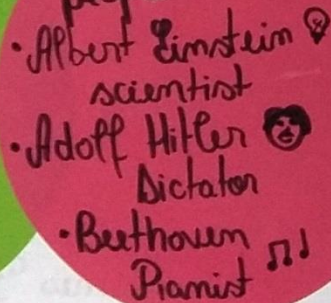 • Albert Einstein
scientist
• Adolf Hitler
Dictator
• Beethoven
Pianist